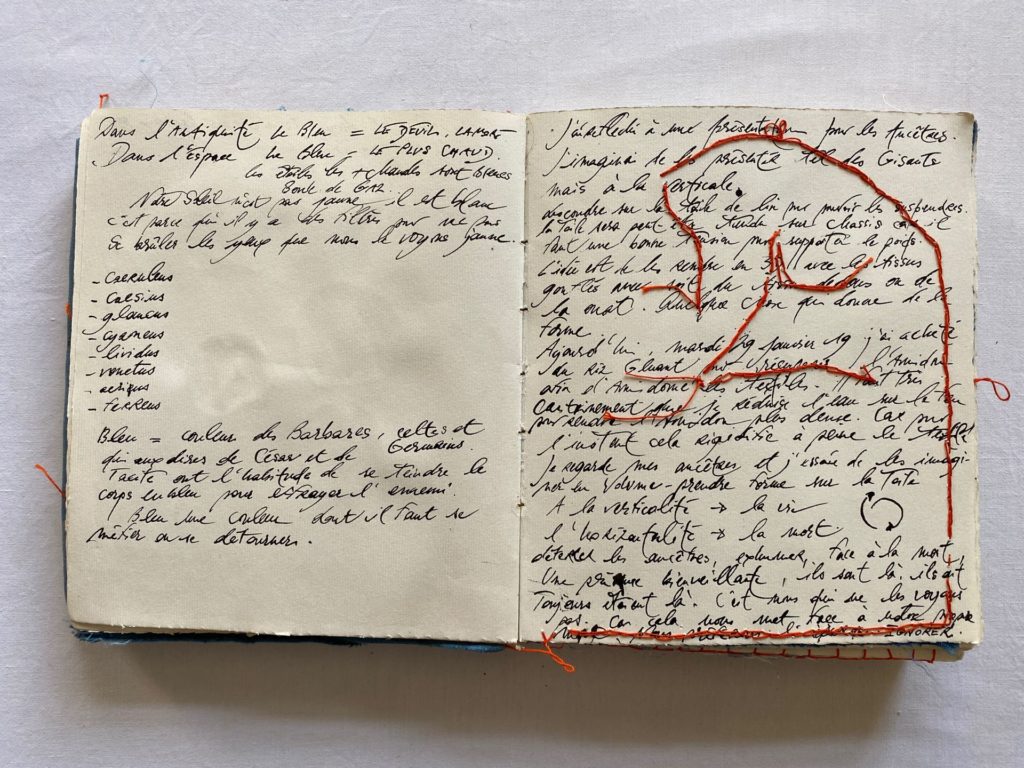 Dans l'Antiquité le Bleu = LE DEUIL, LA MORT
. Dans l'Espace le Bleu = LE PLUS CHAUD.
les étoiles les + chaudes sont bleues
Boule de GAZ
Notre Soleil n'est pas jaune il est blanc
c'est parce qu'il y a des filtres pour ne pas
se brûler les yeux que nous le voyons jaune.
- caeruleus
- caesius
- glaucus
- cyaneus
- lividus
- venetus
- aerius
- ferreus
Bleu = couleur des Barbares, celtes et
Germains.
qui aux dires de César et de
Tacite ont l'habitude de se teindre le
corps en bleu pour effrayer l'ennemi.
Bleu une couleur dont il faut se
méfier ou se détourner.
. J'ai réfléchi à une présentation pour les Ancêtres.
J'imaginai de les présenter tel des Gisants
mais à la verticale.
sur la toile de lin pour pouvoir les suspendre.
la toile sera peut être tendu sur chassis car il
faut une bonne tension pour supporter le poids.
L'idée est de les rendre en 3D avec les tissus
gonflés avec soit du dedans ou de
la ouat. Quelque chose qui donne de la
forme.
Aujourd'hui mardi 29 janvier 19 j'ai acheté
du riz Gluant l'Amidon
afin d'amidonner les textiles. Il faut très
certainement que je réduise l'eau sur le feu
pour rendre l'Amidon plus dense. Car pour
l'instant cela rigidifie à peine le textile
Je regarde mes ancêtres et j'essaie de les imagi-
ner en volume - prendre forme sur la Toile
A la verticalité → la vie
l'horizontalité → la mort.
déterrer les ancêtres, exhumer, face à la mort
Une bienveillante, ils sont là. ils ont
Toujours étaient là. C'est nous qui ne les voyons
pas. Car cela nous met face à notre
IGNORER.